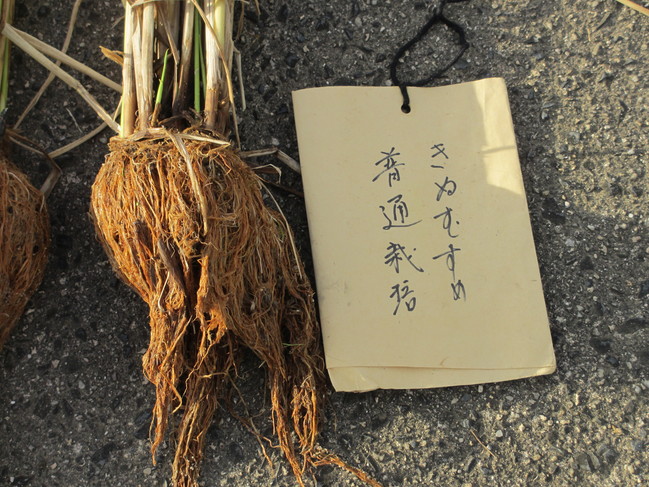 きぬむすめ
普通栽培